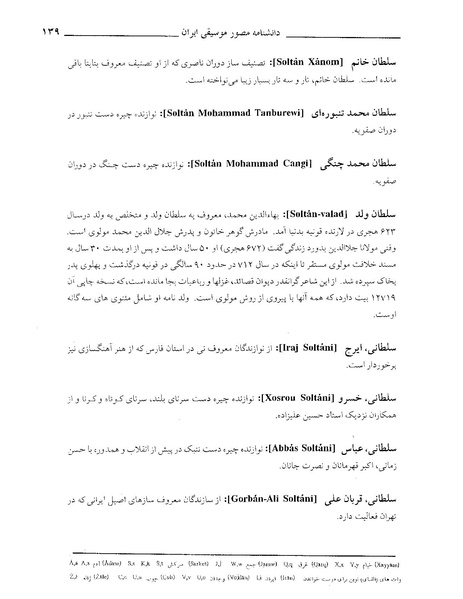 دانشنامه مصور موسیقی ایران ۱۳۹
سلطان خانم [Soltán Xánom]: تصنیف ساز دوران ناصری که از او تصنیف معروف بتابتا باقی
مانده است. سلطان خانم، تار و سه تار بسیار زیبا می‌نواخته است.
سلطان محمد تنبوره‌ای [Soltán Mohammad Tanburewi]: نوازنده چیره دست تنبور در
دوران صفویه.
سلطان محمد چنگی [Soltán Mohammad Cangi]: نوازنده چیره دست چنگ در دوران
صفویه.
سلطان ولد [Soltán-valad]: بهاءالدین محمد، معروف به سلطان ولد و متخلص به ولد درسال
۶۲۳ هجری در لارنده قونیه بدنیا آمد. مادرش گوهر خاتون و پدرش جلال الدین محمد مولوی است.
وقتی مولانا جلالدین بدرود زندگی گفت (۶۷۲ هجری) او ۵۰ سال داشت و پس از او بمدت ۳۰ سال به
مسند خلافت مولوی مستقر تا اینکه در سال ۷۱۲ در حدود ۹۰ سالگی در قونیه درگذشت و پهلوی پدر
بخاک سپرده شد. از این شاعر گرانقدر دیوان قصائد، غزلها و رباعیات بجا مانده است، که نسخه چاپی آن
۱۲۷۱۹ بیت دارد، که همه آنها با پیروی از روش مولوی است. ولد نامه او شامل مثنوی های سه گانه
اوست.
سلطانی، ایرج [Iraj Soltáni]: از نوازندگان معروف نی در استان فارس که از هنر آهنگسازی نیز
برخوردار است.
سلطانی، خسرو [Xosrou Soltáni]: نوازنده چیره دست سرنای بلند، سرنای کوتاه و کرنا و از
همکاران نزدیک استاد حسین علیزاده.
سلطانی، عباس [Abbás Soltáni]: نوازنده چیره دست تنبک در پیش از انقلاب و همدوره با حسن
زمانی، اکبر قهرمانان و نصرت جانان.
سلطانی، قربان علی [Gorbán-Ali Soltáni]: از سازندگان معروف سازهای اصیل ایرانی که در
تهران فعالیت دارد.